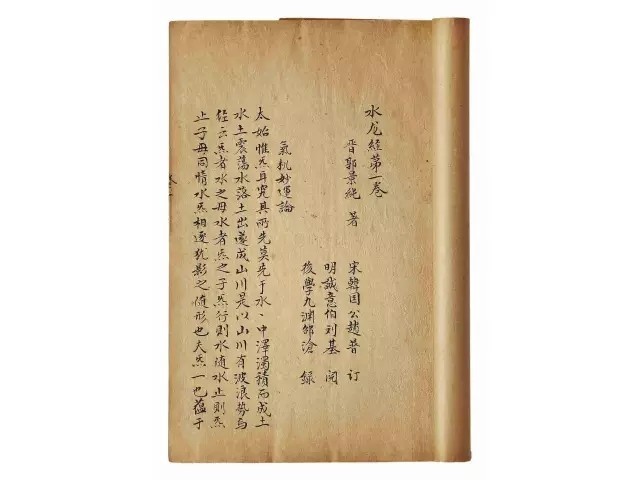 水龙經第一卷
晋郭景純 著
宋韓国公趙普 订
明誠意伯刘基 閱
後學九渊邹滄 録
氣机妙運論
太始惟炁耳究其所先莫先于水、中澤濁積而成土
水土震蕩水落土出遂成山川是以山川有波浪势焉
經云炁者水之母水者炁之子炁行則水随水止則炁
止子母同情水炁相逐犹影之随形也夫炁一也蕴于